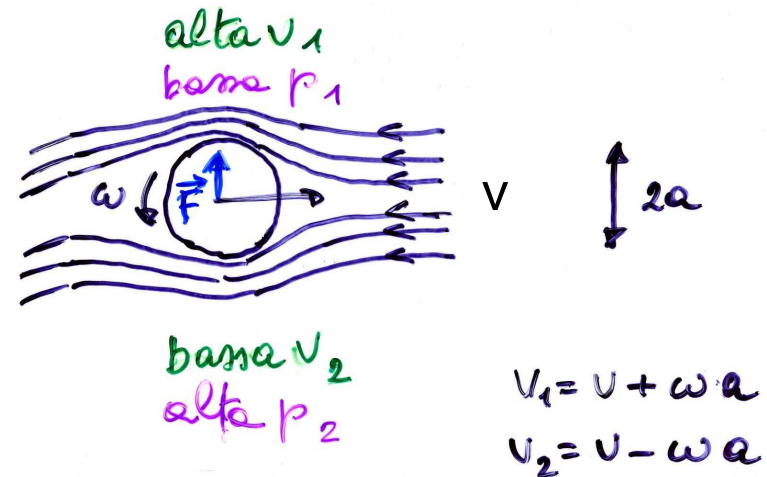 alta v₁
bassa p₁
ω
F
V
2a
bassa v₂
alta p₂
V₁ = v + ω a
V₂ = v − ω a